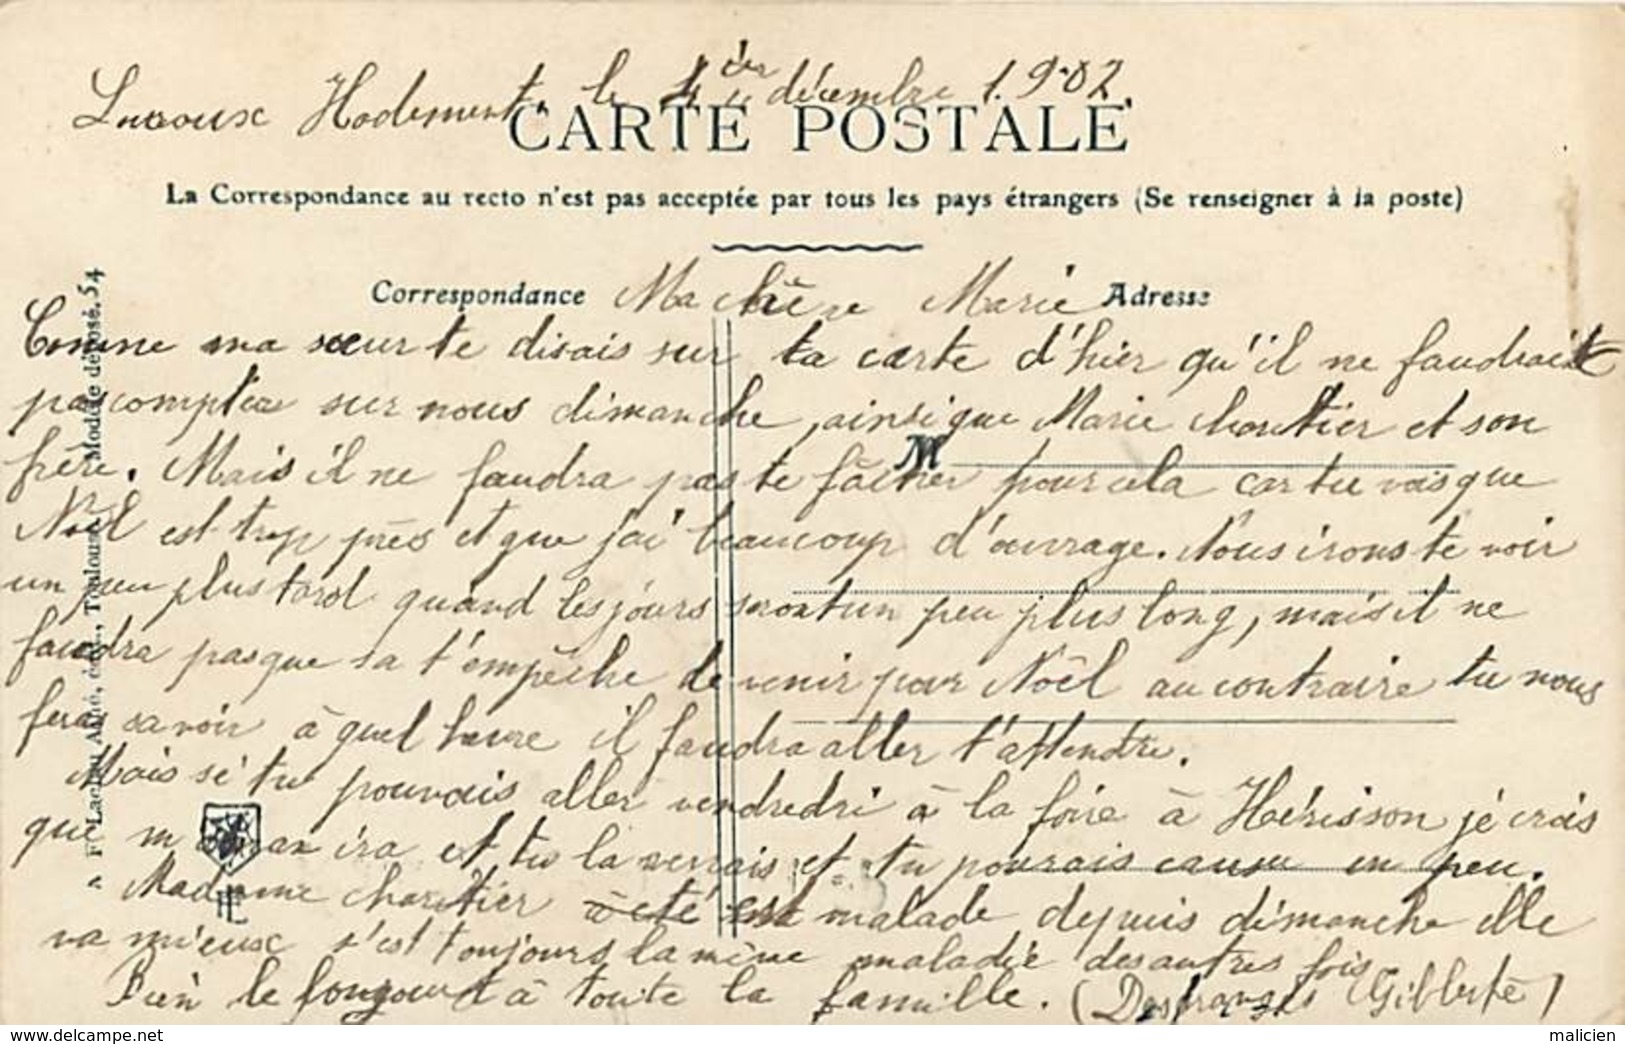 Hodement, le 1er décembre 1.902.
CARTE POSTALE
La Correspondance au recto n'est pas acceptée par tous les pays étrangers (Se renseigner à la poste)
Correspondance Ma chère Marie Adresse
Comme ma sœur te disais sur ta carte d'hier qu'il ne faudrait
pas compter sur nous dimanche, ainsi que Marie charitier et son
frère. Mais il ne faudra pas te fâcher pour cela car tu vois que
M
Noël est trop près et que j'ai beaucoup d'ouvrage. Nous irons te voir
un peu plus tard quand les jours seront un peu plus long, mais il ne
faudra pas que sa t'empêche de venir pour Noël au contraire tu nous
feras savoir à quel heure il faudra aller t'attendre.
Mais si tu pouvais aller vendredi à la foire à Hérisson je crois
que ira et tu la verrais et tu pourais causer un peu.
Madame charitier à été est malade depuis dimanche elle
va mieux s'est toujours la même maladie des autres fois.
Bien le bonjour à toute la famille. (Desfranges Gilberte)
F. Lachau Aîné, édit., Toulouse Modèle déposé. 54
https://www.delcampe.net
malicien